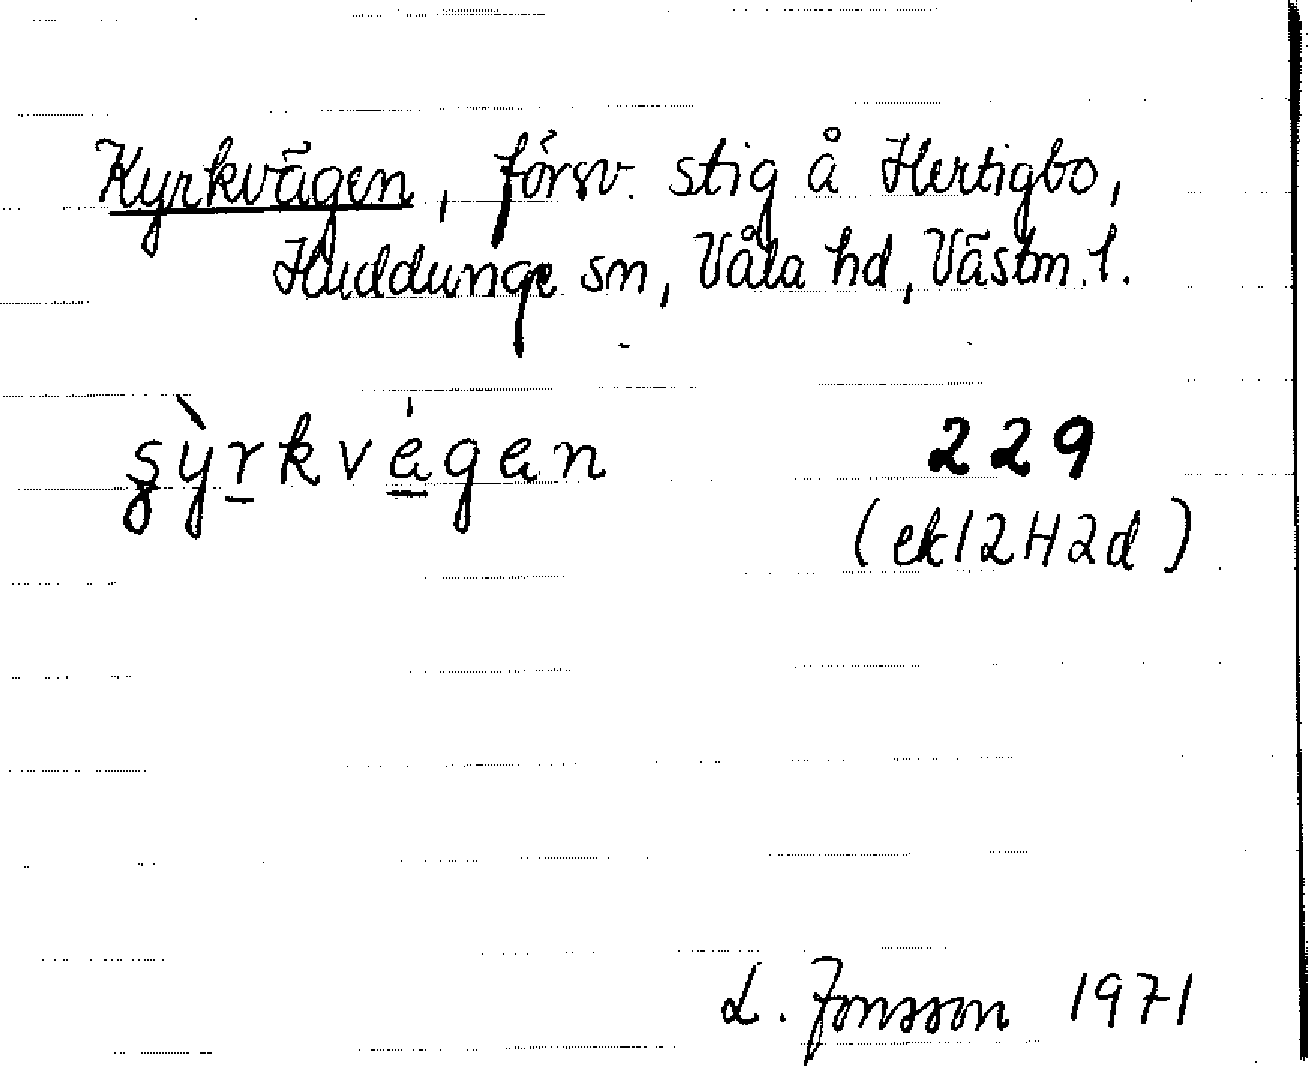 Kyrkvägen, försv. stig å Hertigbo,
Huddunge sn, Våla hd, Västm. l.
şỳr̲kvé̲gen 229
(ek12H2d)
L. Jonsson 1971